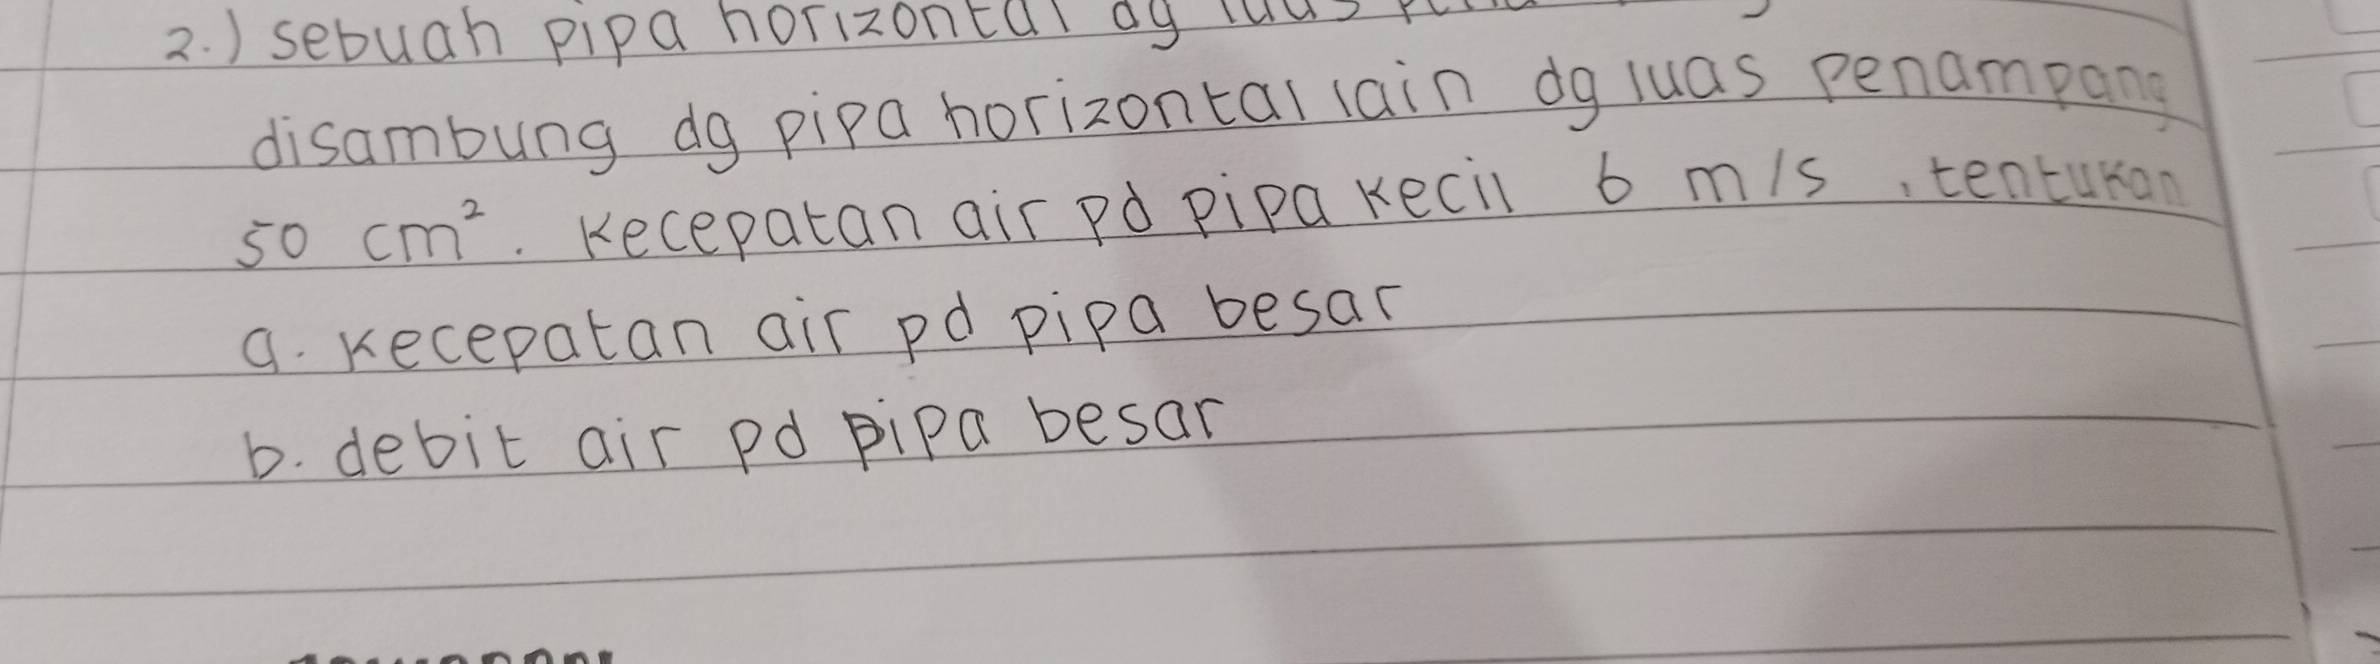 2.) sebuah pipa horizontal dg luas
disambung dg pipa horizontal lain dg luas penampang
50 cm². Kecepatan air pd pipa kecil 6 m/s, tentukan
a. Kecepatan air pd pipa besar
b. debit air pd pipa besar